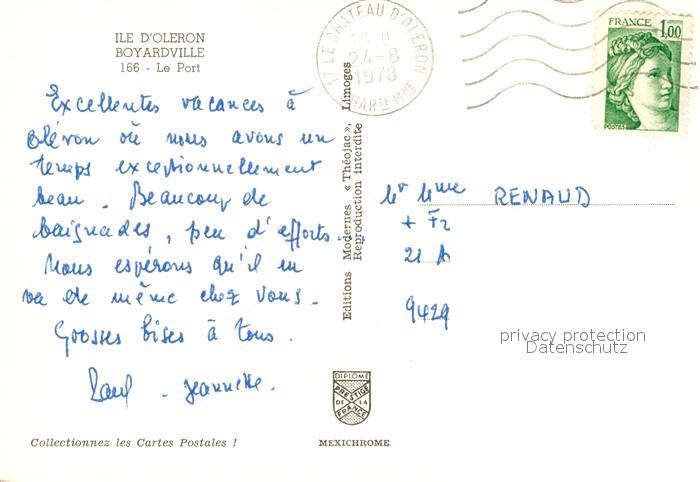 ILE D'OLERON
BOYARDVILLE
166 - Le Port
Excellentes vacances à
Oléron où nous avons un
temps exceptionnellement
beau. Beaucoup de
baignades, peu d'efforts...
Nous espérons qu'il en
va de même chez vous.
Grosses bises à tous.
Paul - Jeannette.
Collectionnez les Cartes Postales !
Editions Modernes « Théojac », Limoges
Reproduction interdite
DIPLOME
PRESTIGE
DE LA
FRANCE
MEXICHROME
17 LE CHATEAU D'OLERON
24-8
1978
CHARTE MME
FRANCE 1,00
POSTES
Mr Mme RENAUD
21
9429
privacy protection
Datenschutz